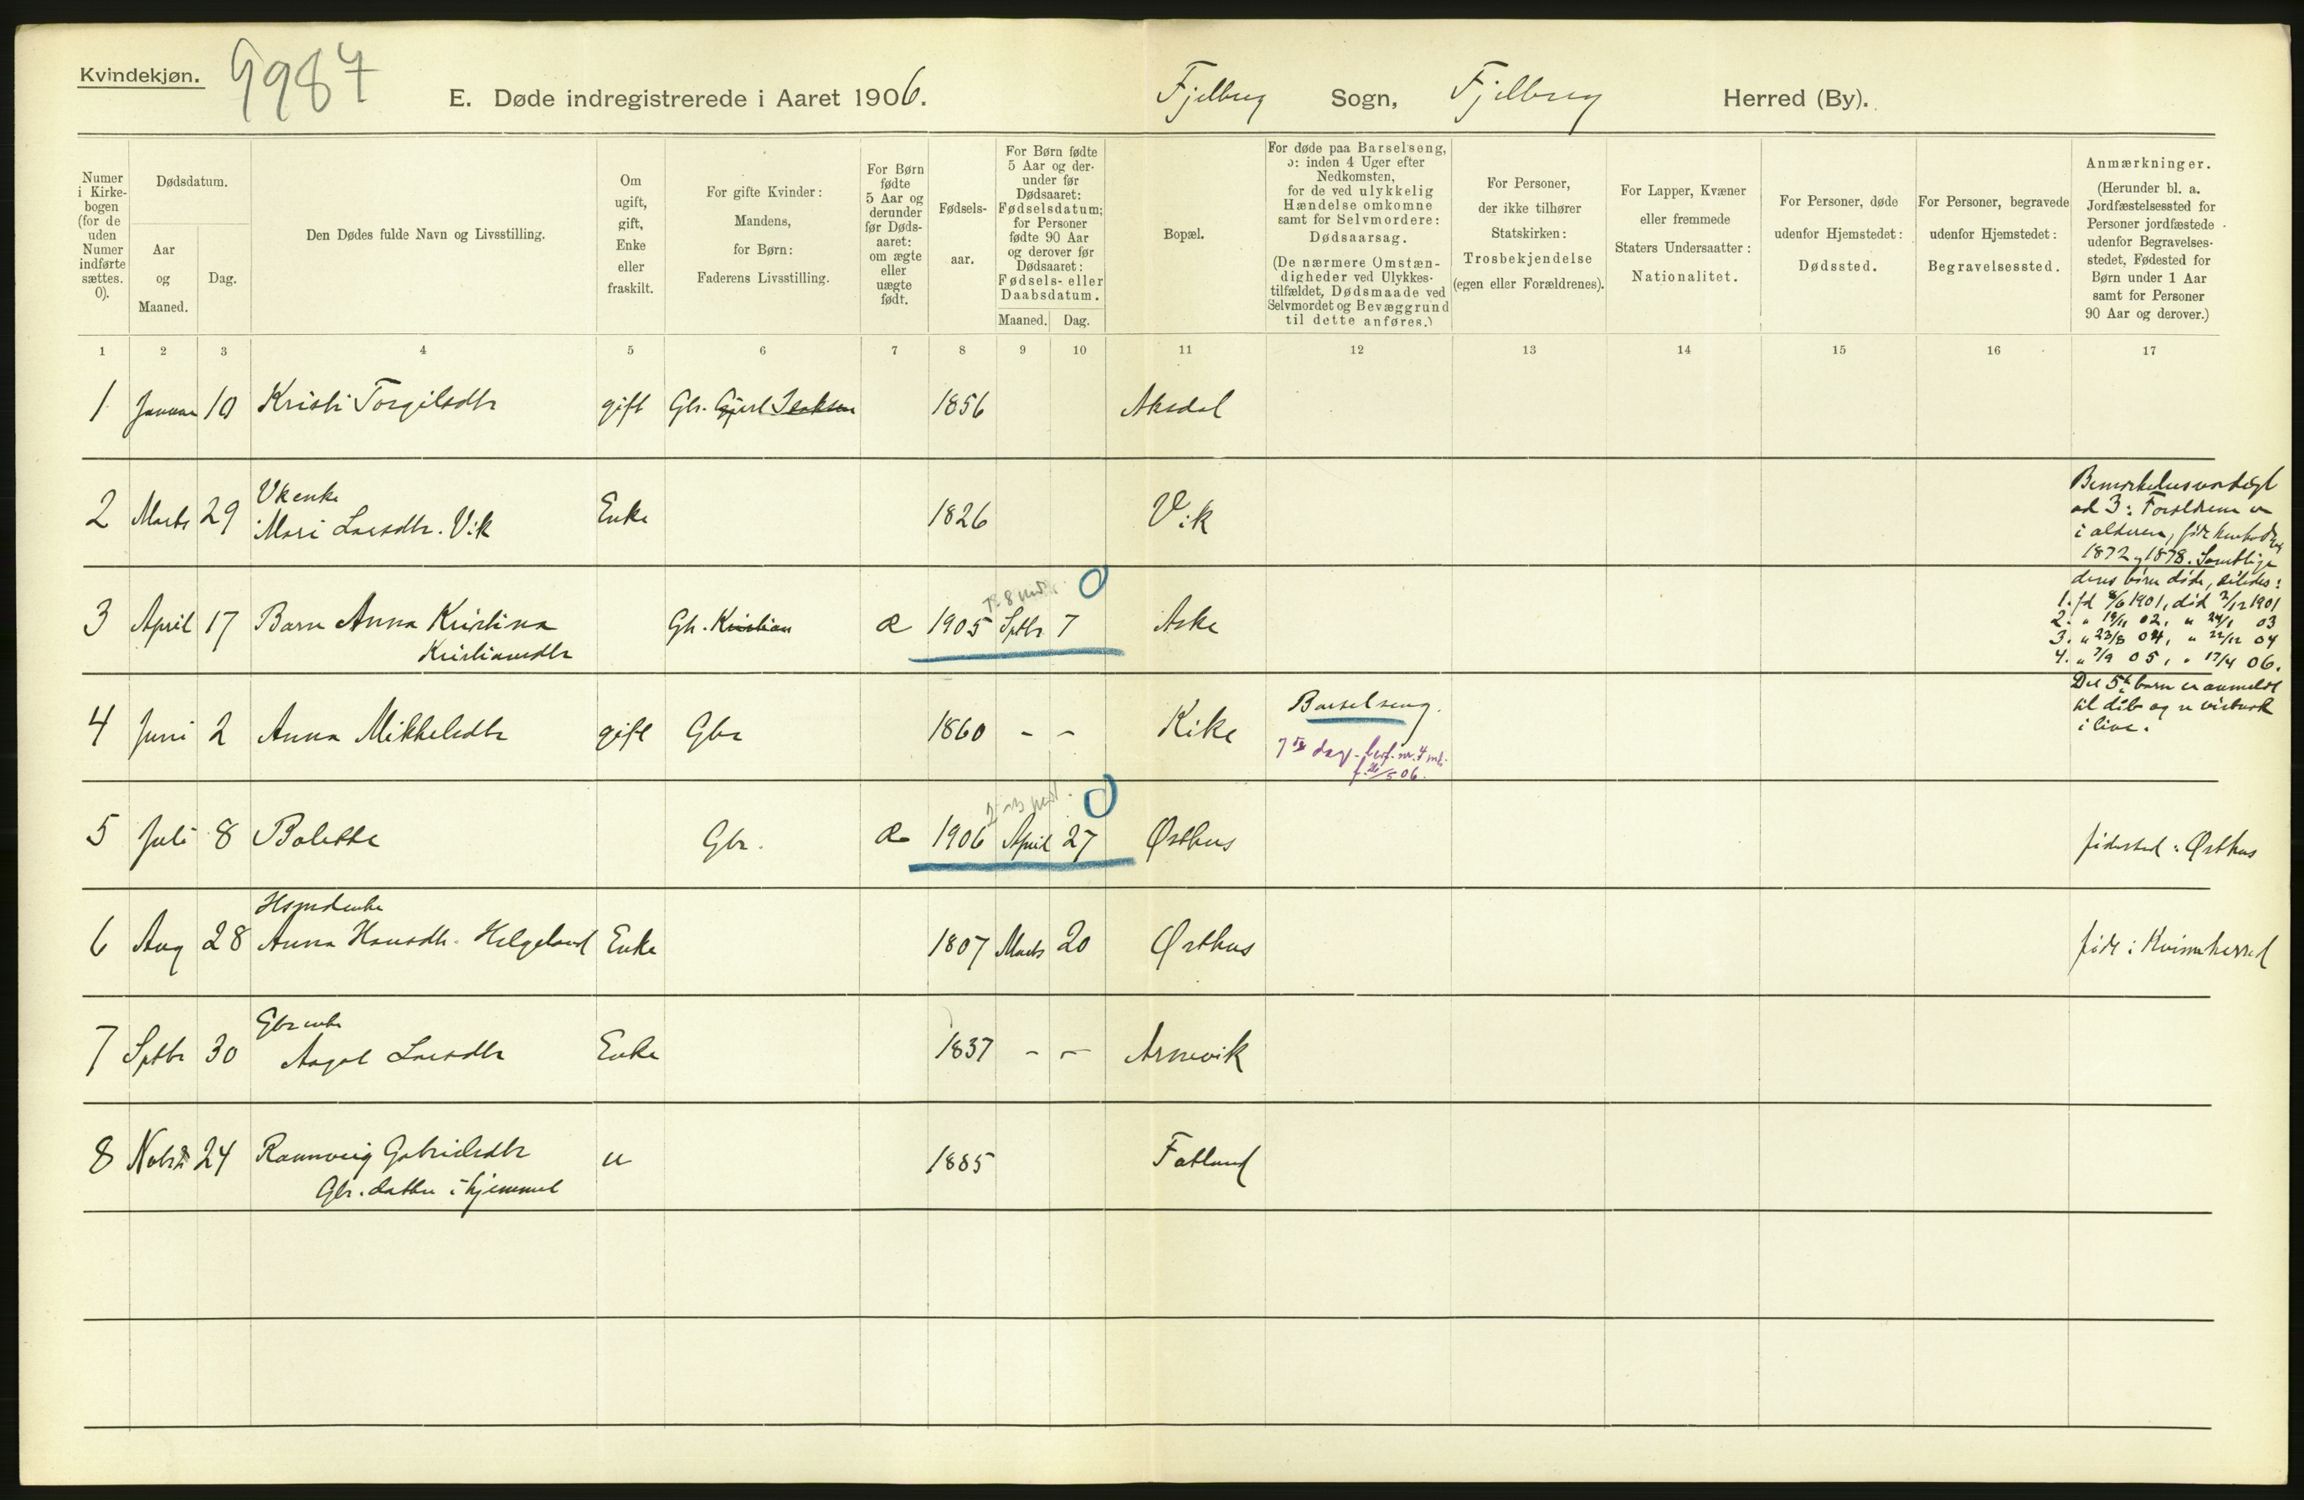 Kvindekjøn.
9987
E. Døde indregistrerede i Aaret 1906.
Fjelberg Sogn, Fjelberg Herred (By).
Numer
i Kirke-
bogen
(for de
uden
Numer
indførte
sættes.
0).
Dødsdatum.
Aar
og
Maaned.
Dag.
Den Dødes fulde Navn og Livsstilling.
Om
ugift,
gift,
Enke
eller
fraskilt.
For gifte Kvinder:
Mandens,
for Børn:
Faderens Livsstilling.
For Børn
fødte
5 Aar og
derunder
før Døds-
aaret:
om ægte
eller
uægte
født.
Fødsels-
aar.
For Børn fødte
5 Aar og der-
under før
Dødsaaret:
Fødselsdatum;
for Personer
fødte 90 Aar
og derover før
Dødsaaret:
Fødsels- eller
Daabsdatum.
Maaned. Dag.
Bopæl.
For døde paa Barselseng,
ɔ: inden 4 Uger efter
Nedkomsten,
for de ved ulykkelig
Hændelse omkomne
samt for Selvmordere:
Dødsaarsag.
(De nærmere Omstæn-
digheder ved Ulykkes-
tilfældet, Dødsmaade ved
Selvmordet og Bevæggrund
til dette anføres.)
For Personer,
der ikke tilhører
Statskirken:
Trosbekjendelse
(egen eller Forældrenes).
For Lapper, Kvæner
eller fremmede
Staters Undersaatter:
Nationalitet.
For Personer, døde
udenfor Hjemstedet:
Dødssted.
For Personer, begravede
udenfor Hjemstedet:
Begravelsessted.
Anmærkninger.
(Herunder bl. a.
Jordfæstelsessted for
Personer jordfæstede
udenfor Begravelses-
stedet, Fødested for
Børn under 1 Aar
samt for Personer
90 Aar og derover.)
1 2 3 4 5 6 7 8 9 10 11 12 13 14 15 16 17
1 Januar 10 Kristi Torgilsdtr gift Gbr. Gjert Isaksen 1856 Aksdal
Vkenke
2 Marts 29 Mari Larsdtr. Vik Enke 1826 Vik
Bemærkelsesværdigt
ad 3: Forældrene er
i alderen, født henholdsv
1872 og 1878. Samtlige
deres børn døde, således:
1. fd 8/6 1901, død 2/12 1901
2. " 19/11 02, " 24/1 03
3. " 23/8 04, " 22/12 04
4. " 7/9 05, " 17/4 06.
Det 5te barn er anmeldt
til dåb og er vistnok
i live.
3 April 17 Barn Anna Kristina Gbr. Kristian Æ 1905 Sptbr 7 Aske
Kristiansdtr
4 Juni 2 Anna Mikkelsdtr gift Gbr 1860 - - Kike Barselseng.
7de dag - nr. 4 mk.
f. 26/5 06.
5 Juli 8 Bolette Gbr. Æ 1906 April 27 Ørthus fødested: Ørthus
Husmdenke
6 Aug 28 Anna Hansdtr. Helgeland Enke 1807 Marts 20 Ørthus født i Kvinnherred
Gbrenke
7 Sptbr 30 Aagot Larsdtr Enke 1837 - - Arnevik
8 Novbr 24 Rannveig Gabrielsdtr u 1885 Fatland
Gbr. datter i hjemmet